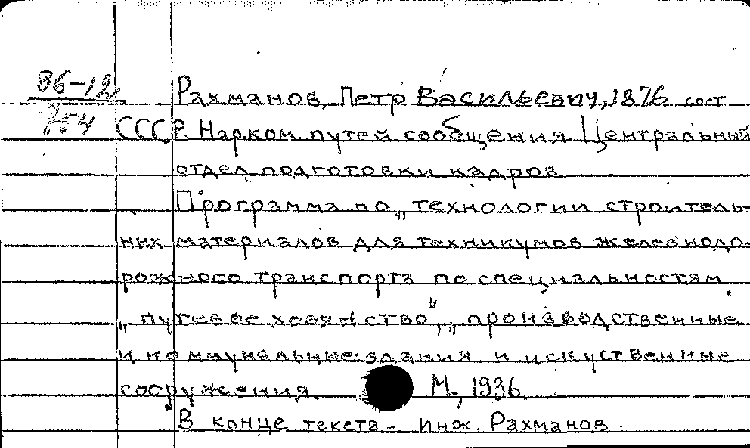 86-12
Рахманов, Петр Васильевич, 1876 сост
754
СССР. Нарком. путей сообщения. Центральный
отдел подготовки кадров
Программа по „технологии строитель-
ных материалов для техникумов железнодо-
рожного транспорта по специальностям
„путевое хозяйство", „производственные
и коммунальные здания и искуственные
сооружения М., 1936
В конце текста - инж. Рахманов